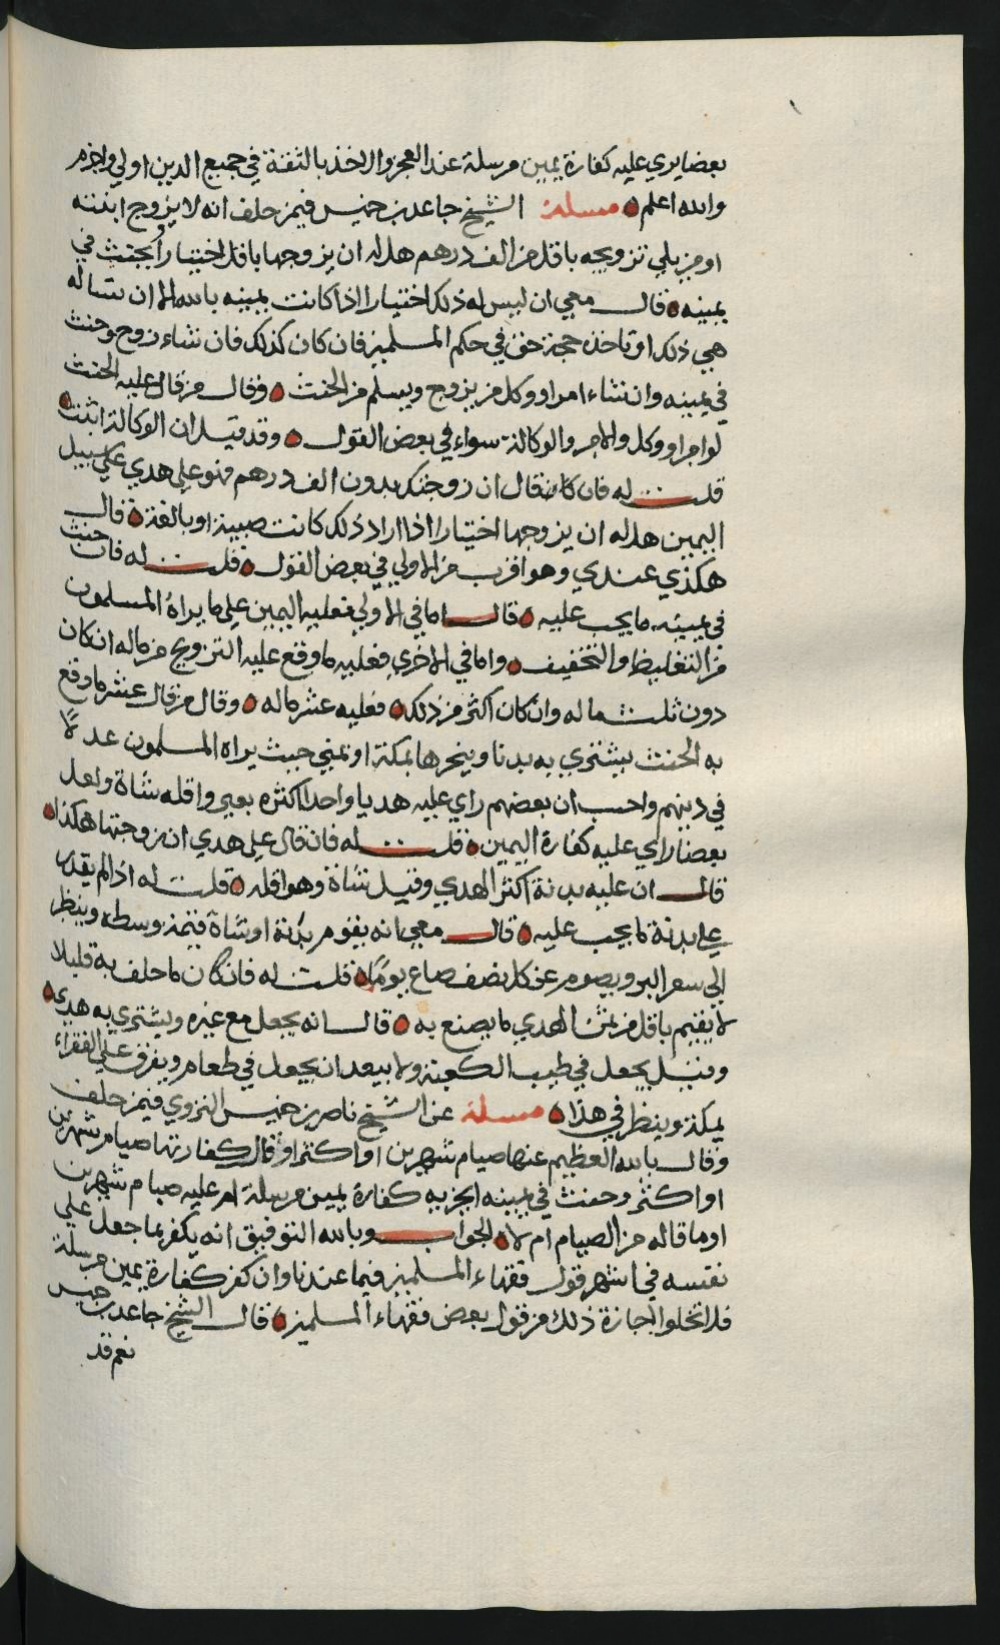 بعضا يري عليه كفارة يمين مرسلة عند العجز والاخذ بالثقة في جميع الدين اولي واجزم
والله اعلم مسلة الشيخ جاعد بن خميس فيمن حلف انه لا يزوج ابنته
او من يلي تزويجه باقل من الف درهم هل له ان يزوجها باقل اختيارا ويحنث في
يمينه قال معي ان ليس له ذلك اختيارا اذا كانت يمينه بالله الا ان تساله
هي ذلك او تاخذ حجة حق في حكم المسلمين فان كان كذلك فان شاء زوج وحنث
في يمينه وان شاء امر او وكل من يزوج ويسلم من الحنث وقال من قال عليه الحنث
لو امر او وكل والامر والوكالة سواء في بعض القول وقد قيل ان الوكالة اثبت
قلت له فان كان قال ان زوجتك بدون الف درهم فهو علي هدي علي سبيل
اليمين هل له ان يزوجها اختيارا اذا اراد ذلك كانت صبية او بالغة قال
هكذي عندي وهو اقرب من الاولي في بعض القول قلت له فان حنث
في يمينه ما يجب عليه قال اما في الاولي فعليه اليمين علي ما يراه المسلمون
من التغليظ والتخفيف واما في الاخري فعليه ما وقع عليه التزويج من ماله ان كان
دون ثلث ماله وان كان اكثر من ذلك فعليه عشر ماله وقال من قال عشر ما وقع
به الحنث يشتري به بدنا وينحرها بمكة او بمني حيث يراه المسلمون عدلا
في دينهم واحسب ان بعضهم راي عليه هديا واحدا اكثره بعير واقله شاة ولعل
بعضا راي عليه كفارة اليمين قلت له فان قال علي هدي ان زوجتها هكذا
قال ان عليه بدنة اكثر الهدي وقيل شاة وهو اقله قلت له اذا لم يقدر
علي بدنة ما يجب عليه قال معي انه يقوم بدنة او شاة قيمة وسطه وينظر
الي سعر البر ويصوم عن كل نصف صاع يوما قلت له فان كان ما حلف به قليلا
لا يقيم باقل من ثمن الهدي ما يصنع به قال انه يجعل مع غيره ويشتري به هدي
وقيل يجعل في طيب الكعبة ولا يبعد ان يجعل في طعام ويفرق علي الفقراء
بمكة وينظر في هذا مسلة عن الشيخ ناصر بن خميس النزوي فيمن حلف
وقال بالله العظيم عنها صيام شهرين او اكثر او قال كفارتها صيام شهرين
او اكثر وحنث في يمينه ايجزيه كفارة يمين مرسلة ام عليه صيام شهرين
او ما قاله من الصيام ام لا الجواب وبالله التوفيق انه يكفر بما جعل علي
نفسه في اشهر قول فقهاء المسلمين فيما عندنا وان كفر كفارة يمين مرسلة
فلا تخلوا اجازة ذلك من قول بعض فقهاء المسلمين قال الشيخ جاعد بن خميس
نعم قد